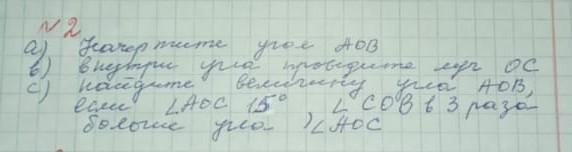 №2
а) Начертите угол АОВ
в) внутри угла проведите луч ОС
с) найдите величину угла АОВ,
если ∠АОС 15° ∠СОВ в 3 раза
больше угла ∠АОС